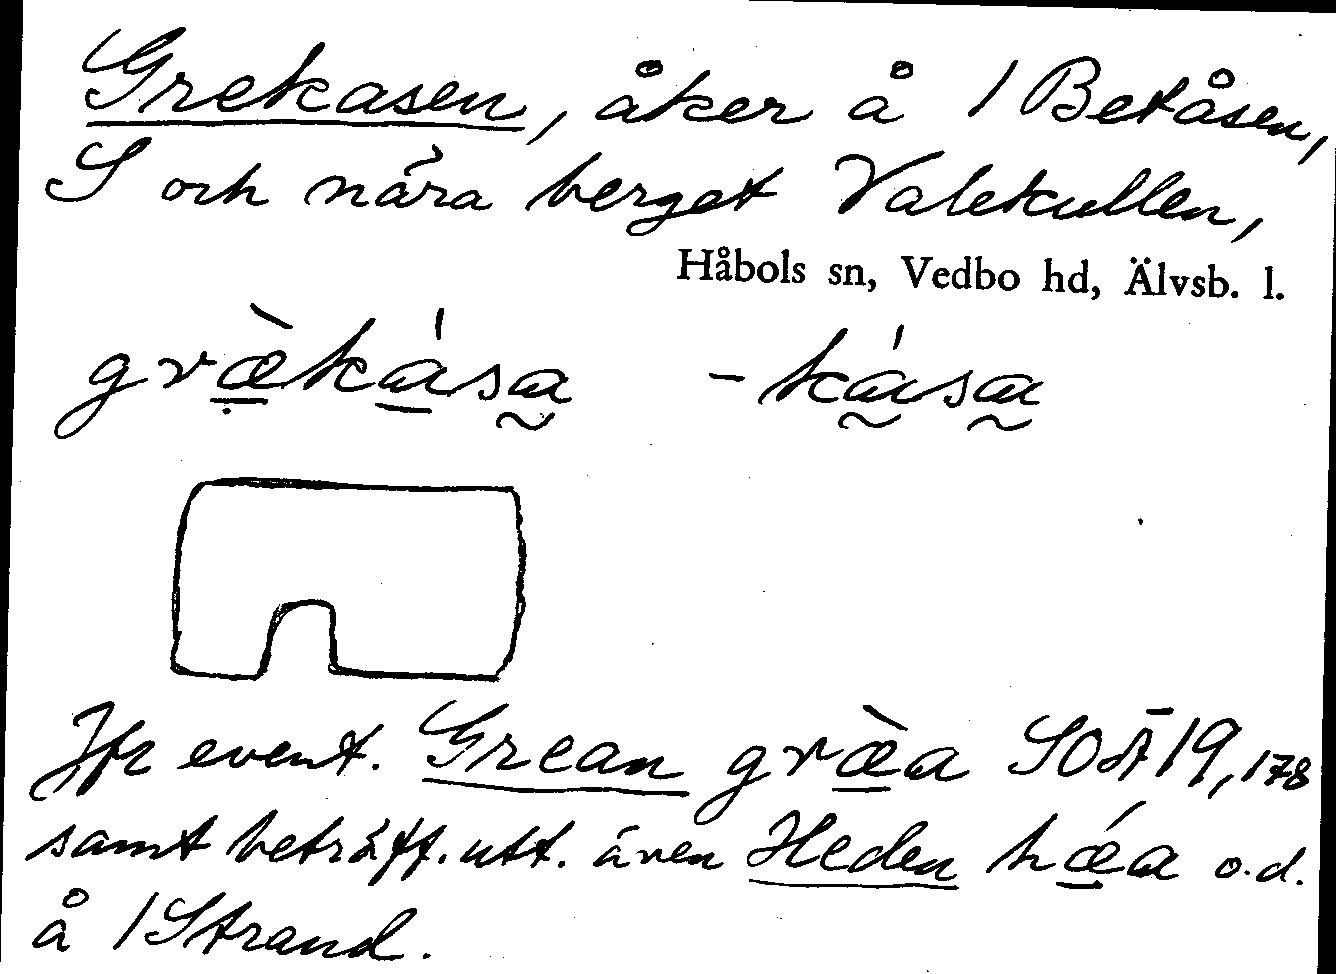 Grekasen, åker å 1 Betåsen,
S och nära berget Valekullen,
Håbols sn, Vedbo hd, Älvsb. l.
græ̀kása -kása
Jfr event. Grean græ̀a SOÄ 19, 178
samt beträff. utt. även Heden hǽa o.d.
å 1 Strand.